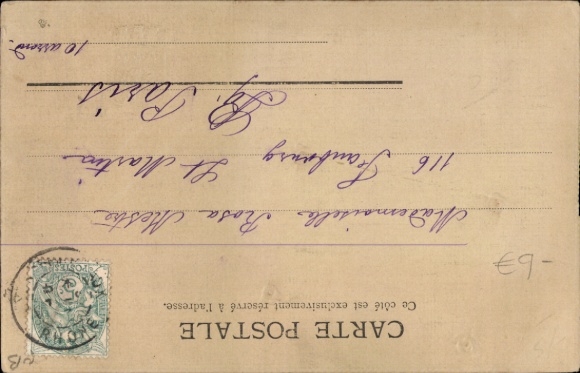 CARTE POSTALE
Ce côté est exclusivement réservé à l'adresse.
Mademoiselle Rosa Mestre
116 Faubourg St Martin
Paris
10 arrond.
POSTES
RHONE
€9-